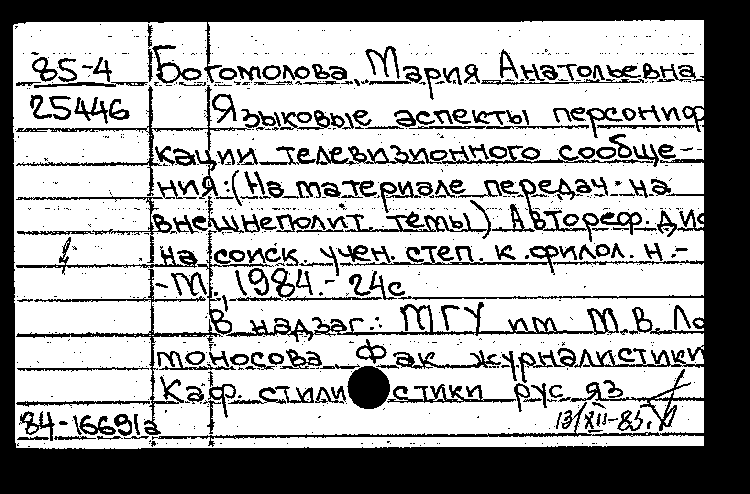 85-4 Богомолова, Мария Анатольевна
25446 Языковые аспекты персониф
кации телевизионного сообще-
ния: (На материале передач на
внешнеполит. темы). Автореф. дис
на соиск. учен. степ. к. филол. н.-
-М., 1984.- 24с
В надзаг.: МГУ им. М.В. Ло
моносова Фак журналистики
Каф. стили стики рус яз
84-16691а 13/XII-85.